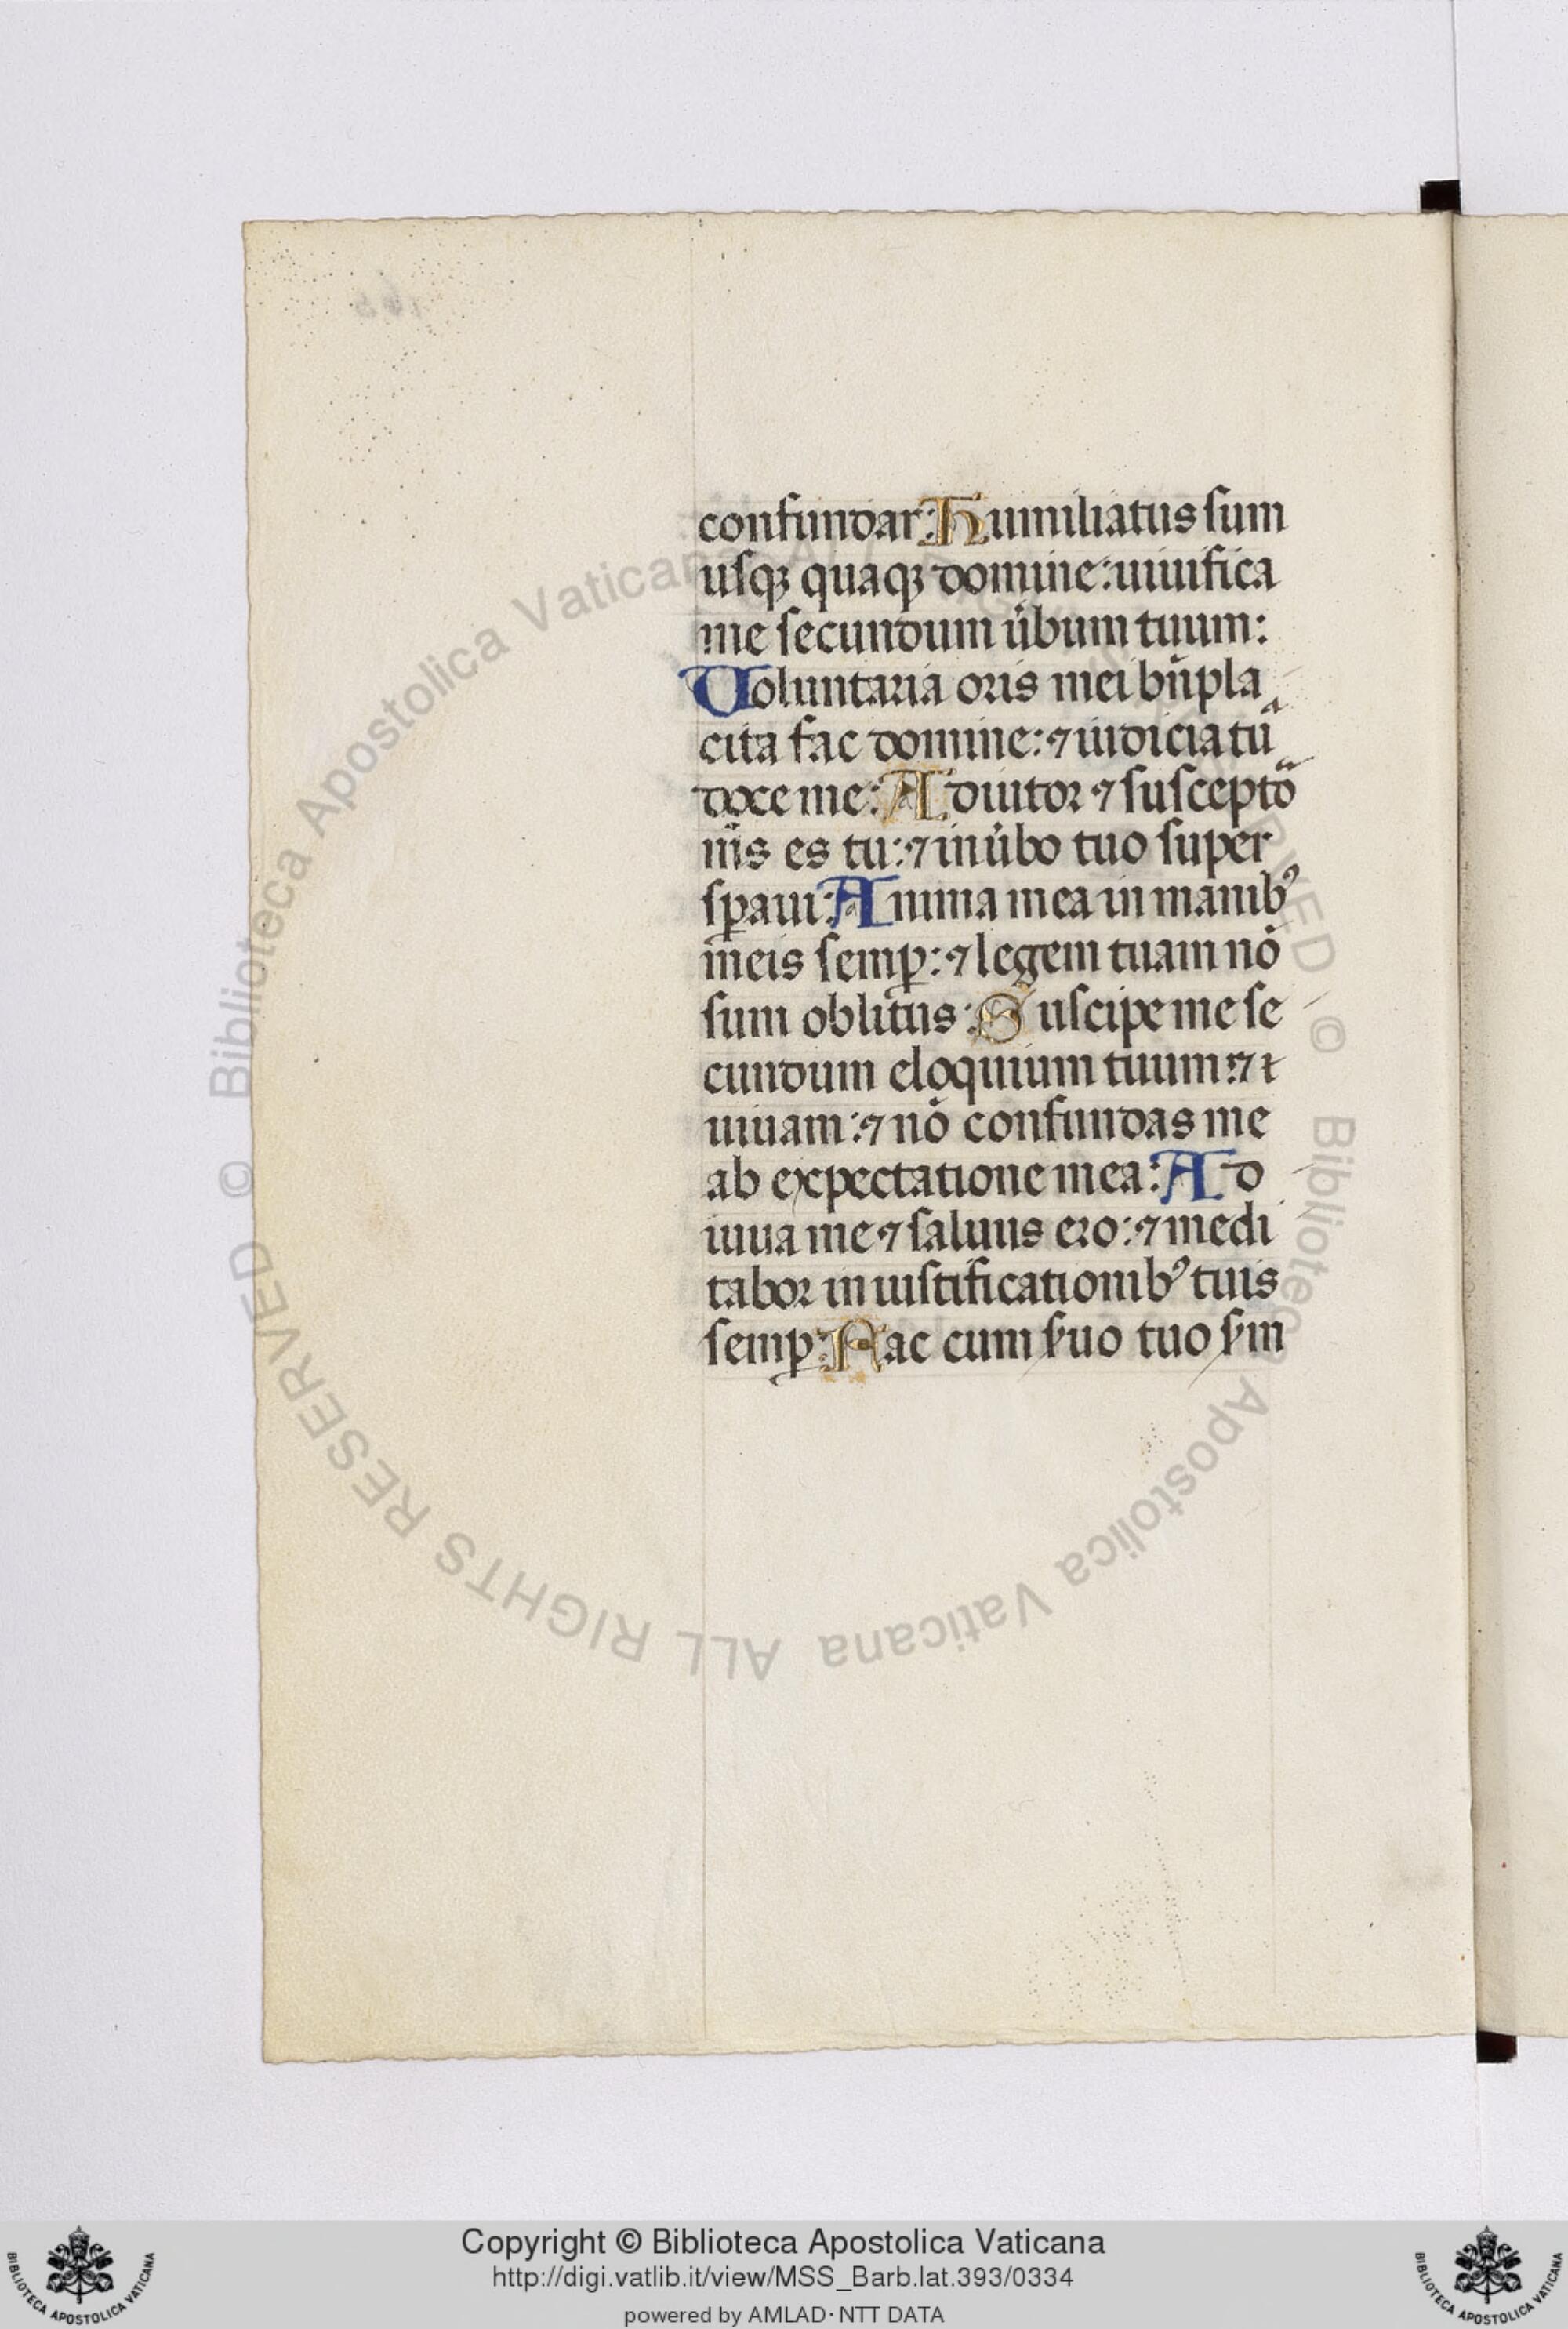 confundar: Humiliatus sum
usqꝫ quaqꝫ domine: uiuifica
me secundum u̇bum tuum:
Voluntaria oris mei bn̄pla
cita fac domine: ⁊ iudicia tuᵃ
doce me: Adiutor ⁊ susceptō
m̄s es tu: ⁊ in u̇bo tuo super
sꝑaui: Anima mea in manibꝰ
meis semꝑ: ⁊ legem tuam nō
sum oblitus: Suscipe me se
cundum eloquium tuum: ⁊
uiuam: ⁊ nō confundas me
ab expectatione mea: Ad
iuua me ⁊ saluus ero: ⁊ medi
tabor in iustificationibꝰ tuis
semꝑ: Fac cum s̕uo tuo s̕m
© Biblioteca Apostolica Vaticana ALL RIGHTS RESERVED © Biblioteca Apostolica Vaticana ALL RIGHTS RESERVED
Copyright © Biblioteca Apostolica Vaticana
http://digi.vatlib.it/view/MSS_Barb.lat.393/0334
powered by AMLAD·NTT DATA
BIBLIOTECA APOSTOLICA VATICANA
BIBLIOTECA APOSTOLICA VATICANA